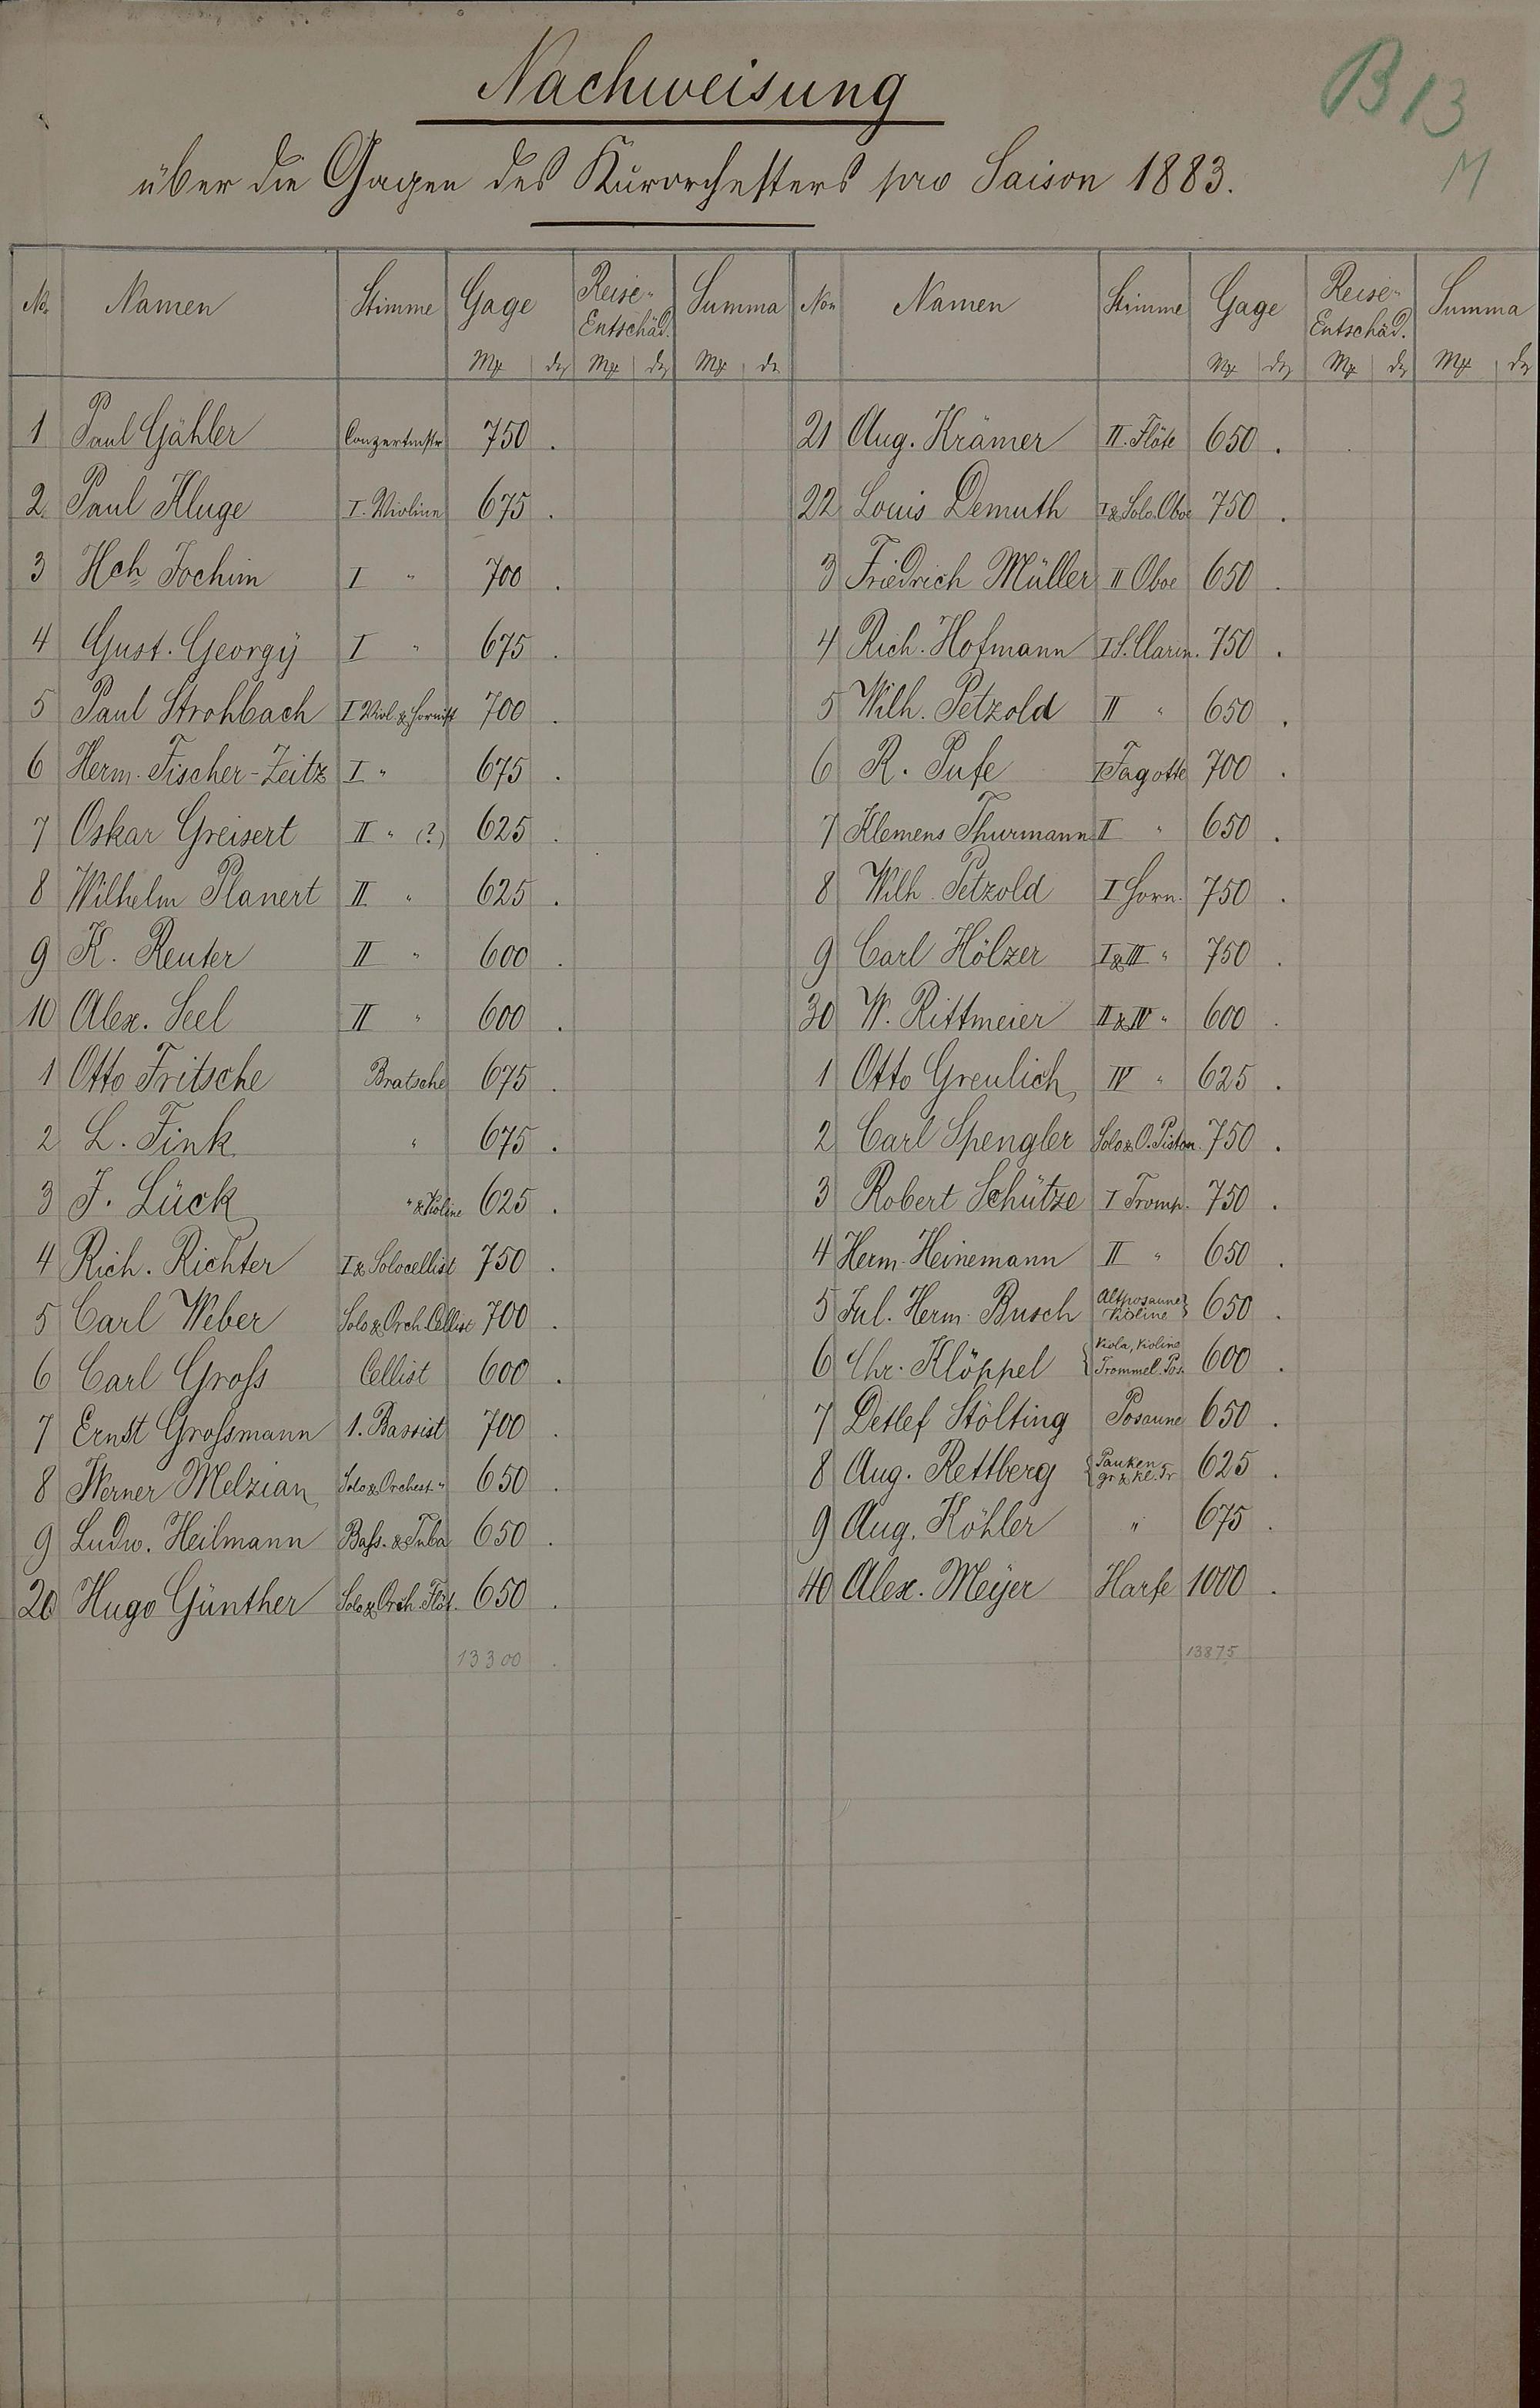 Nachweisung
B 13
M
über die Gagen des Kurorchesters pro Saison 1883.
No. Namen Stimme Gage Reise-Entschäd. Summa
Non Namen Stimme Gage Reise-Entschäd. Summa
1 Paul Gähler Conzertmstr 750 .
2. Paul Kluge I. Violine 675 .
3 Hch. Jochim I " 700 .
4 Gust. Georgÿ I " 675 .
5 Paul Strohbach I Viol. & Hornist 700 .
6 Herm. Fischer-Zeitz I " 675 .
7 Oskar Greisert II " (?) 625 .
8 Wilhelm Planert II " 625 .
9 K. Reuter II " 600 .
10 Alex. Seel II " 600 .
1 Otto Fritsche Bratsche 675 .
2 L. Fink " 675 .
3 J. Lück " & Violine 625 .
4 Rich. Richter I & Solocellist 750 .
5 Carl Weber Solo & Orch. Cellist 700 .
6 Carl Groß Cellist 600 .
7 Ernst Großmann 1. Bassist 700 .
8 Werner Melzian Solo & Orchest. " 650 .
9 Ludw. Heilmann Baß. & Tuba 650 .
20 Hugo Günther Solo & Orch. Flöt. 650 .
13300 .
21 Aug. Krämer II. Flöte 650 .
22 Louis Demuth I & Solo. Oboe 750 .
3 Friedrich Müller II Oboe 650 .
4 Rich. Hofmann I S. Clarin. 750 .
5 Wilh. Petzold II " 650 .
6 R. Pufe I Fagotte 700 .
7 Klemens Thurmann II " 650 .
8 Wilh. Petzold I Horn. 750 .
9 Carl Hölzer I & III " 750 .
30 W. Rittmeier II & IV " 600 .
1 Otto Greulich IV " 625 .
2 Carl Spengler Solo & O. Piston. 750 .
3 Robert Schütze I Tromp. 750 .
4 Herm. Heinemann II " 650 .
5 Jul. Herm. Busch Altposaune Violine 650 .
6 Chr. Klöppel Viola, Violine Trommel. Pos. 600 .
7 Detlef Stölting Posaune 650 .
8 Aug. Rettberg Pauken gr & kl. Tr 625 .
9 Aug. Köhler " 675 .
40 Alex. Meÿer Harfe 1000 .
13875